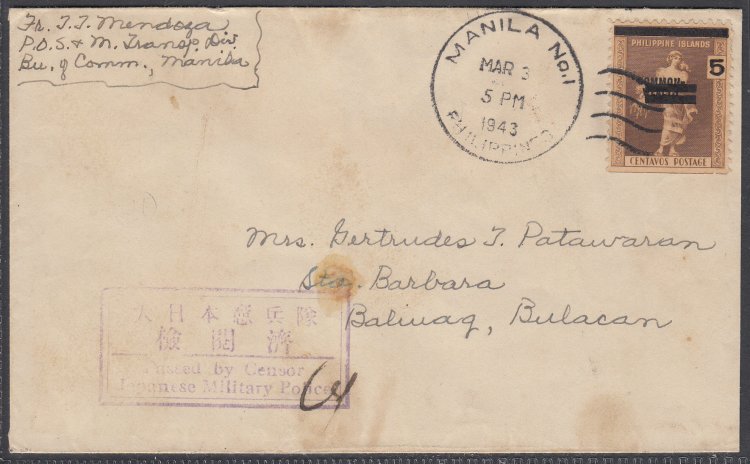 Fr. T.T. Mendoza
P.O.S. & M. Transp. Div.
Bu. of Comm., Manila
MANILA No.1
MAR 3
5 PM
1943
PHILIPPINES
PHILIPPINE ISLANDS
5
COMMON-
CENTAVOS POSTAGE
Mrs. Gertrudes T. Patawaran
Sta. Barbara
Baliuag, Bulacan
大日本憲兵隊
檢閲濟
Passed by Censor
Japanese Military Police